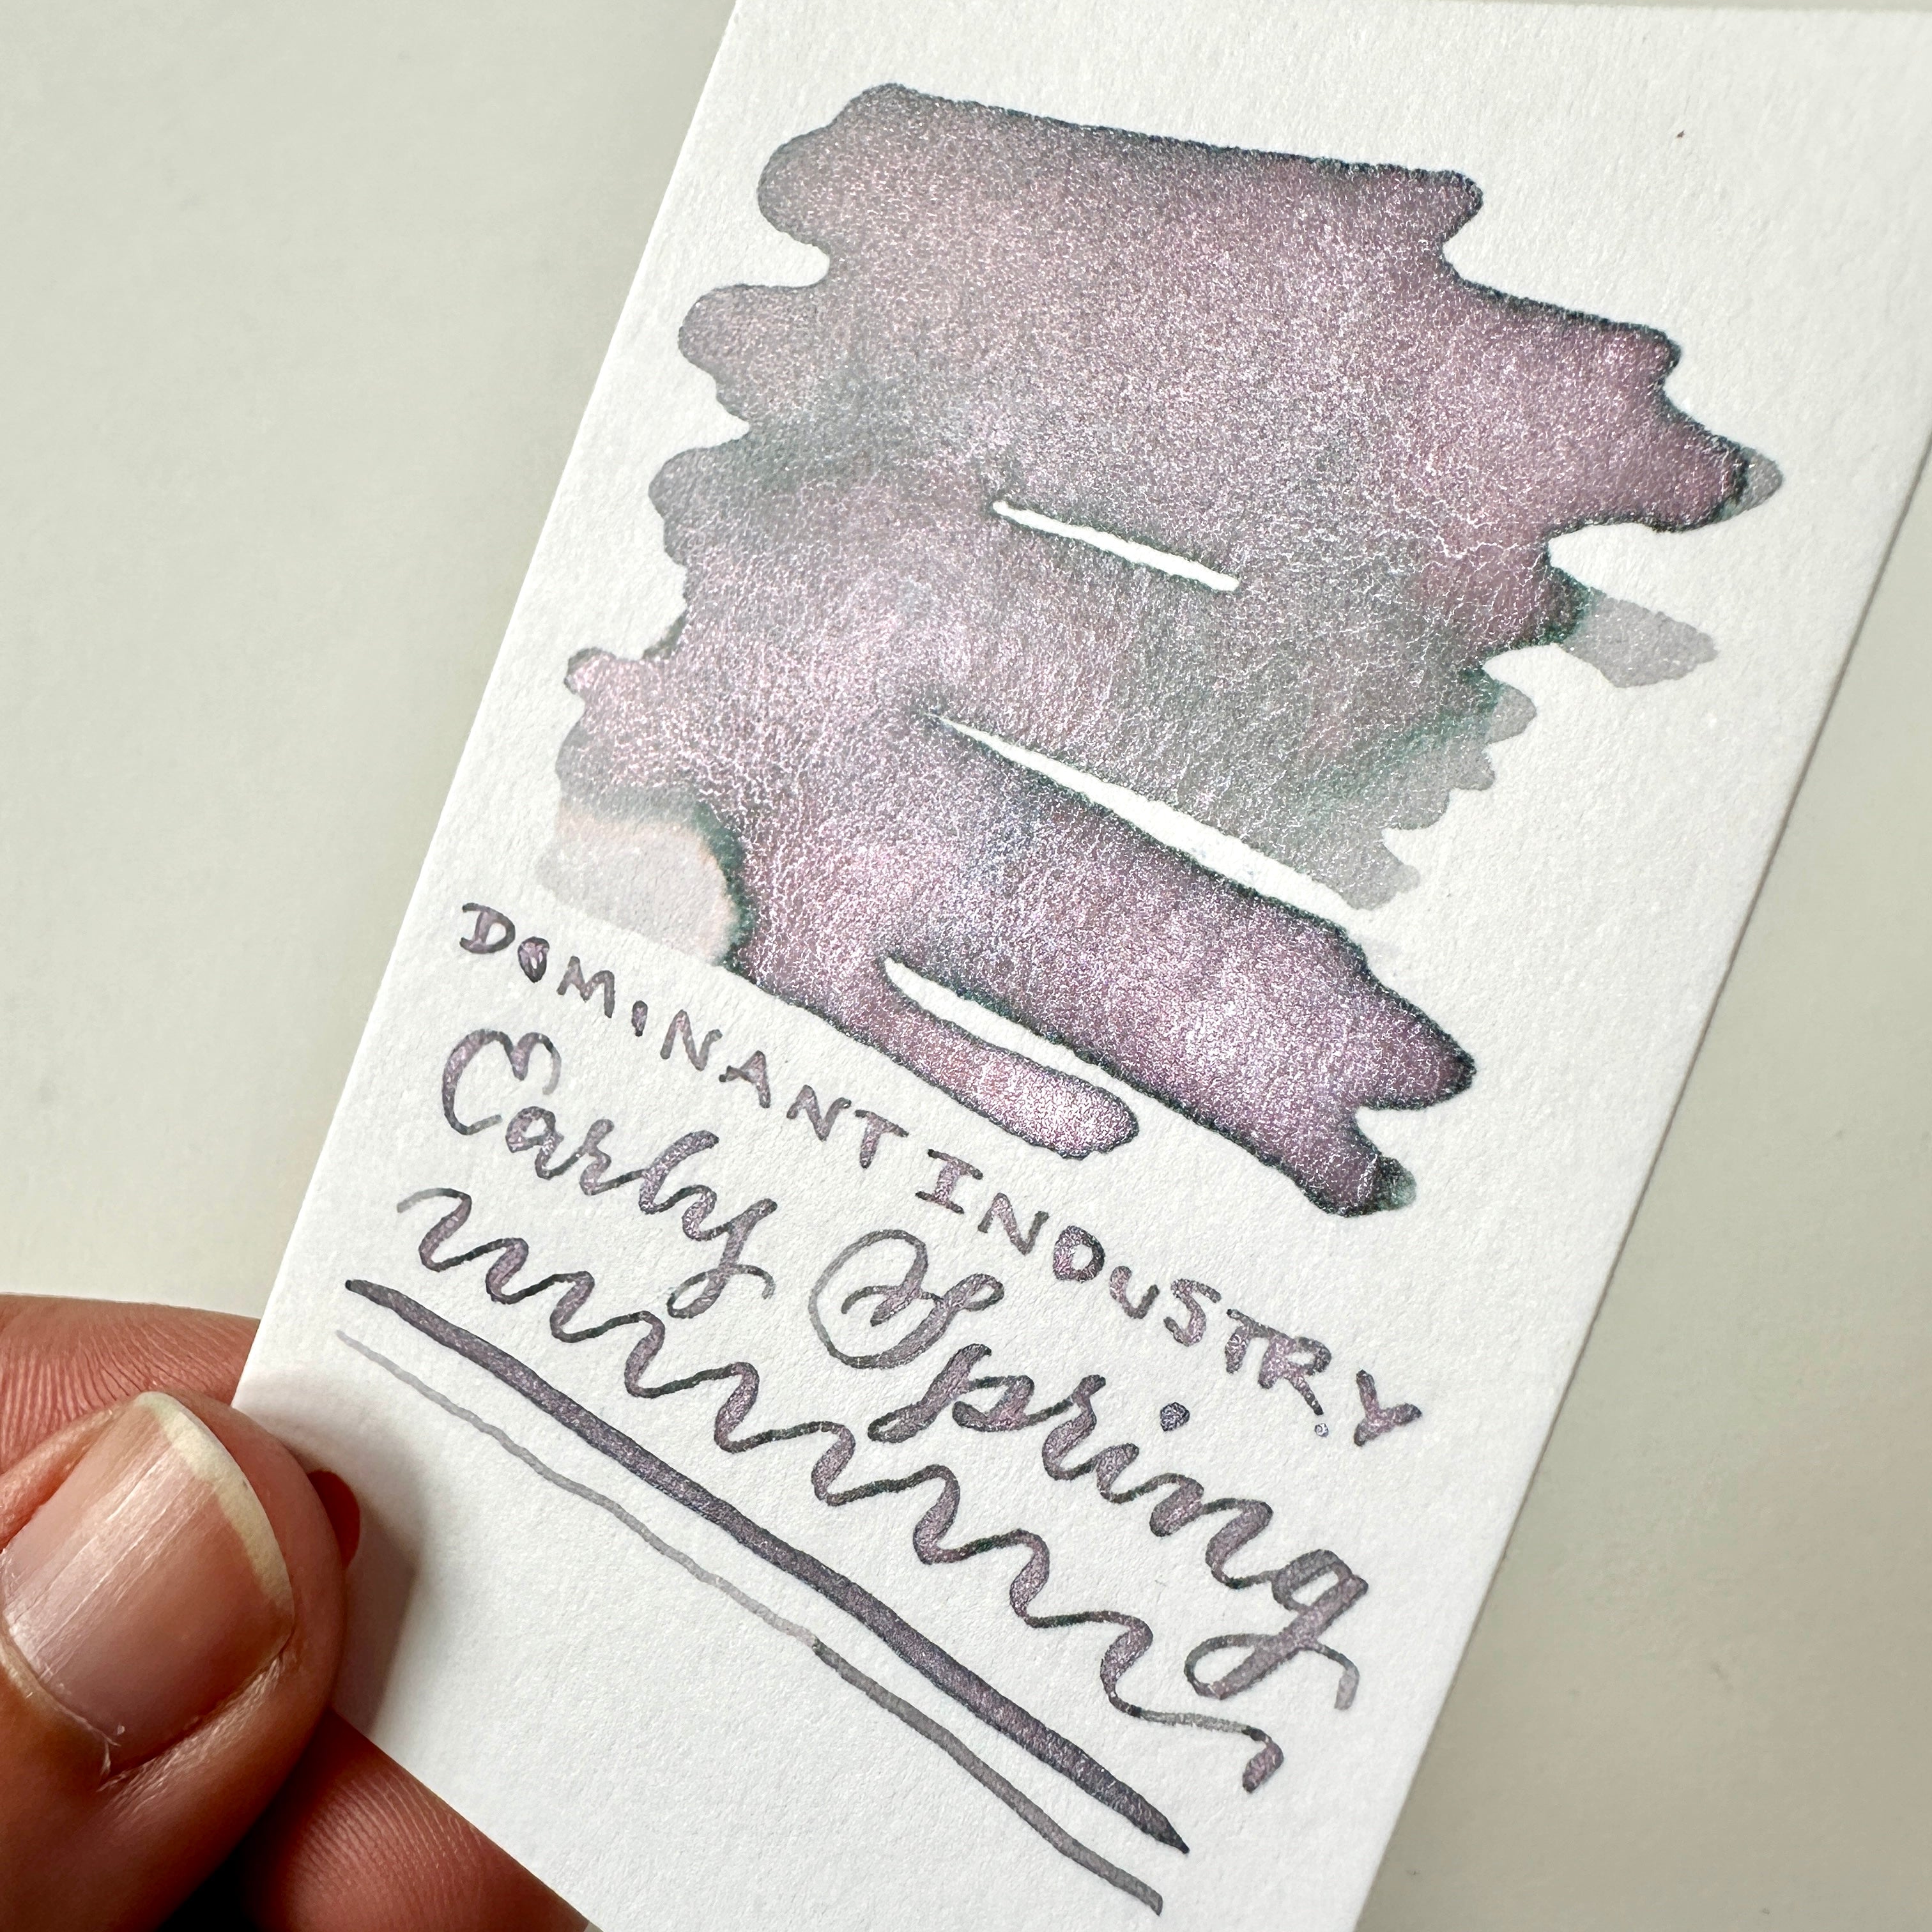 DOMINANT INDUSTRY
Early Spring